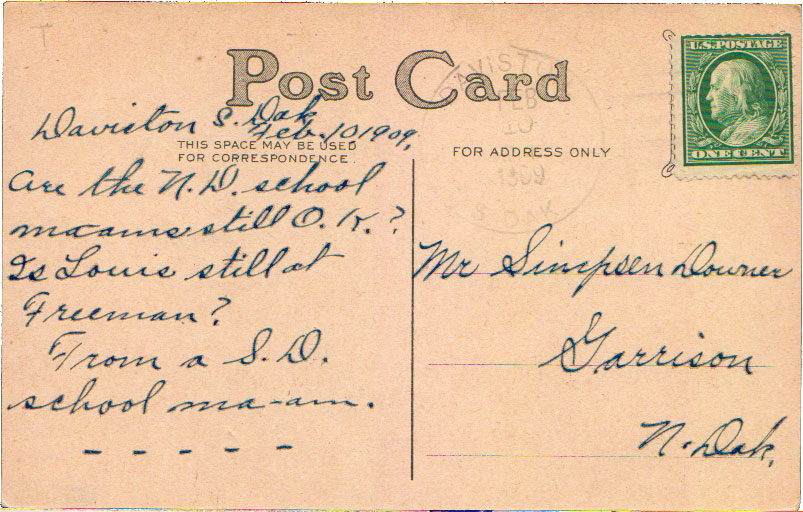 Post Card
Daviston S. Dak
Feb. 10 1909.
THIS SPACE MAY BE USED
FOR CORRESPONDENCE
Are the N.D. school
ma-ams still O.K.?
Is Louis still at
Freeman?
From a S.D.
school ma-am.
- - - - -
AVISTON
FEB
10
1909
S. DAK
U.S. POSTAGE
ONE CENT
FOR ADDRESS ONLY
Mr Simpsen Downer
Garrison
N. Dak.